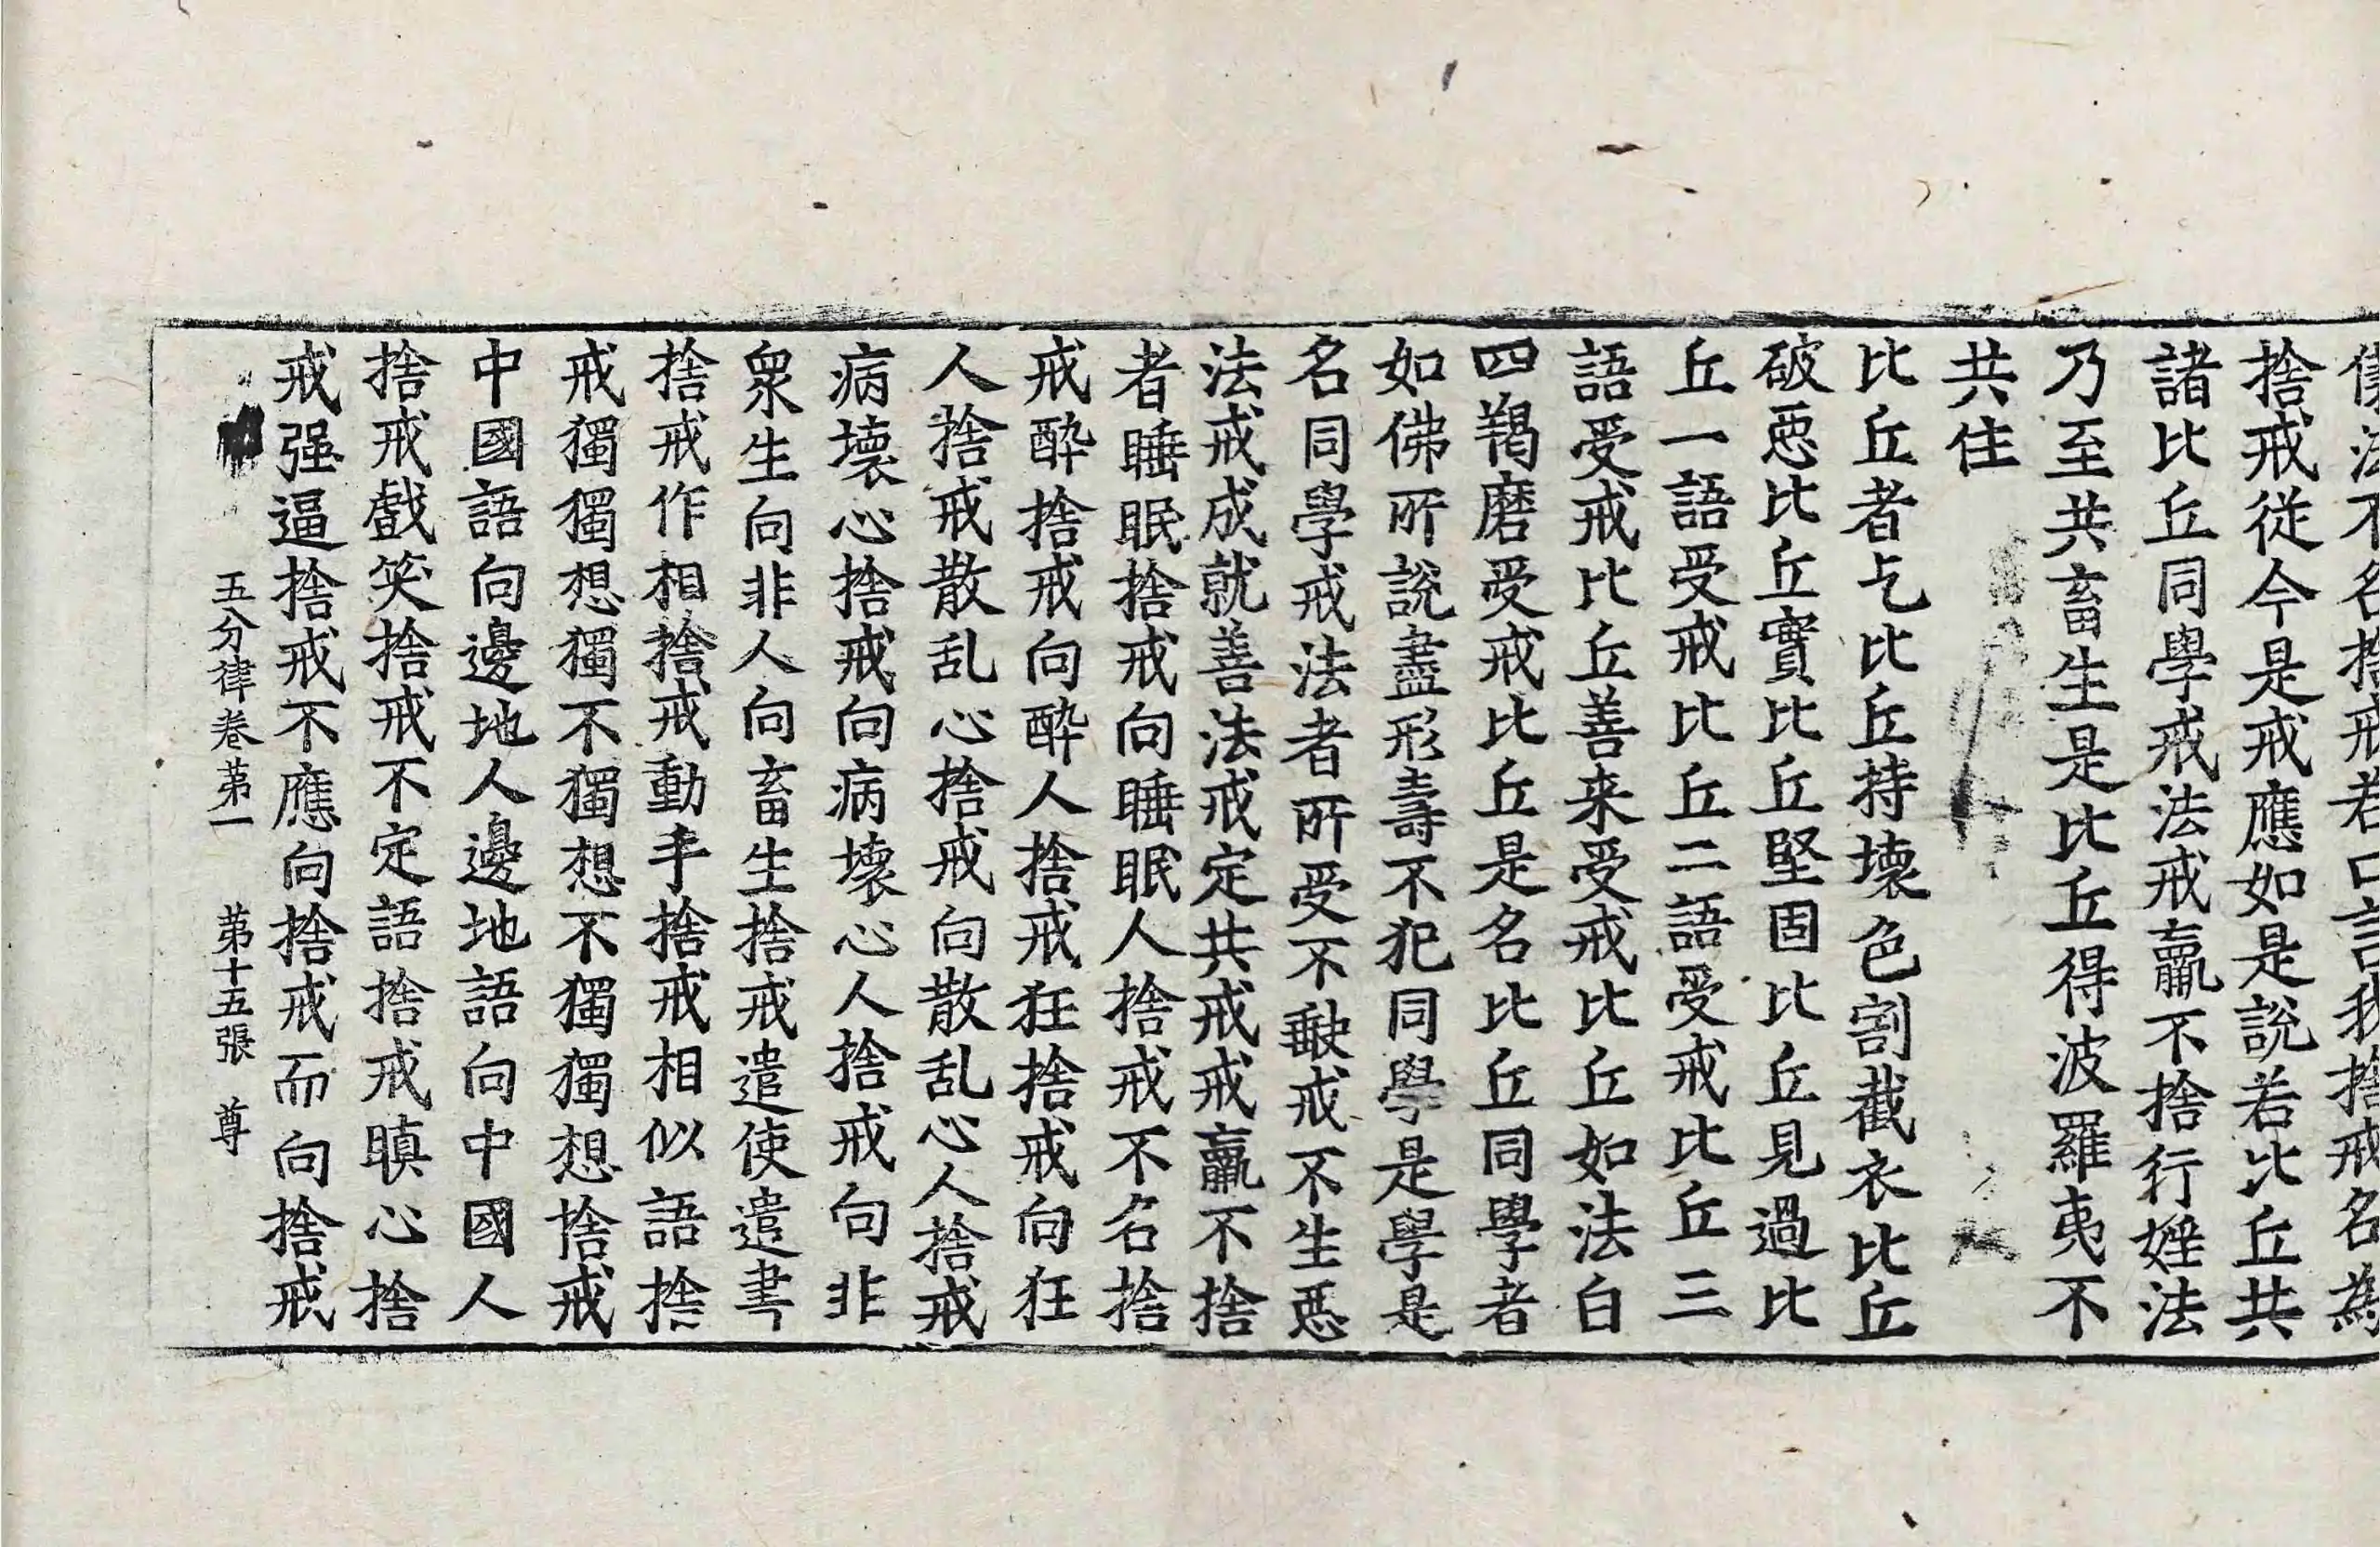 法不名捨戒若口言我捨戒名為
捨戒從今是戒應如是說若比丘共
諸比丘同學戒法戒羸不捨行婬法
乃至共畜生是比丘得波羅夷不
共住
比丘者乞比丘持壞色割截衣比丘
破惡比丘實比丘堅固比丘見過比
丘一語受戒比丘二語受戒比丘三
語受戒比丘善来受戒比丘如法白
四羯磨受戒比丘是名比丘同學者
如佛所說盡形壽不犯同學是學是
名同學戒法者所受不缺戒不生惡
法戒成就善法戒定共戒戒羸不捨
者睡眠捨戒向睡眠人捨戒不名捨
戒酔捨戒向酔人捨戒狂捨戒向狂
人捨戒散乱心捨戒向散乱心人捨戒
病壞心捨戒向病壞心人捨戒向非
衆生向非人向畜生捨戒遣使遣書
捨戒作相捨戒動手捨戒相似語捨
戒獨獨想獨不獨想不獨獨想捨戒
中國語向邊地人邊地語向中國人
捨戒戲笑捨戒不定語捨戒瞋心捨
戒强逼捨戒不應向捨戒而向捨戒
五分律卷苐一 苐十五張 尊